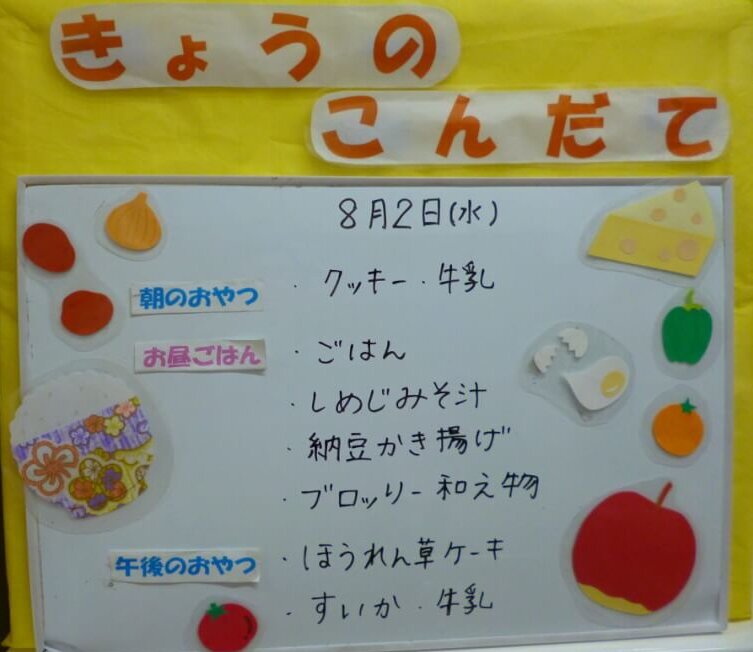 きょうの
こんだて
8月2日(水)
朝のおやつ ・クッキー・牛乳
お昼ごはん ・ごはん
・しめじみそ汁
・納豆かき揚げ
・ブロッリー和え物
午後のおやつ ・ほうれん草ケーキ
・すいか・牛乳